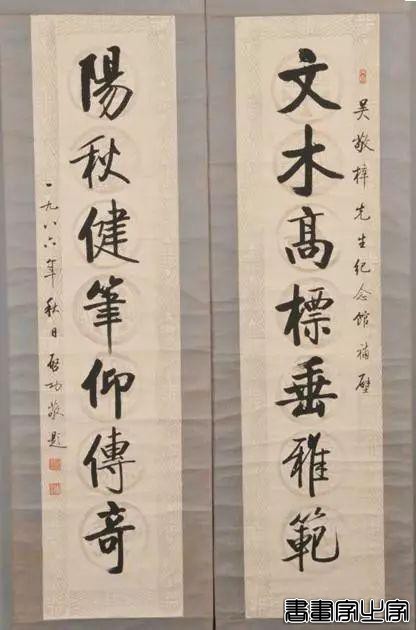 吴敬梓先生纪念馆補壁
文木高標垂雅範
陽秋健筆仰傳奇
一九八六年秋日启功敬題
書畫家之家